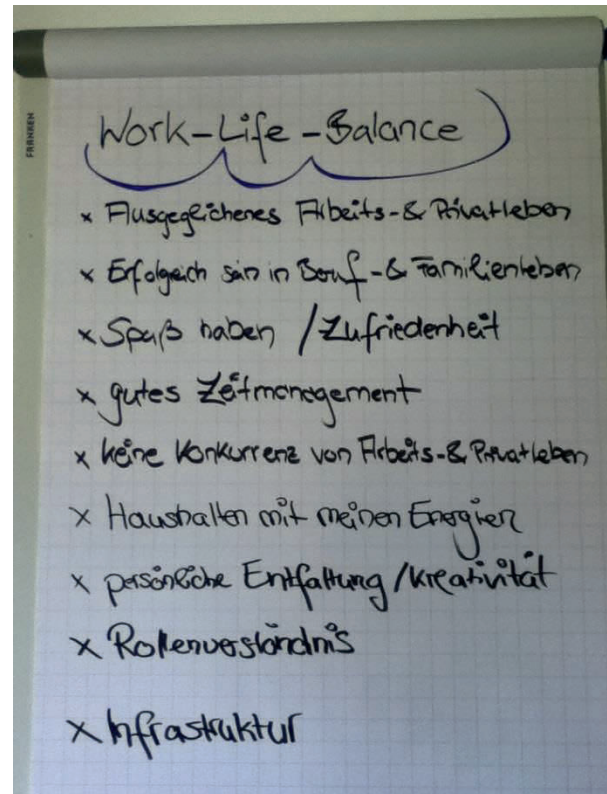 FRANKEN
Work-Life-Balance
x Ausgeglichenes Arbeits-& Privatleben
x Erfolgreich sein in Beruf-& Familienleben
x Spaß haben / Zufriedenheit
x gutes Zeitmanagement
x keine Konkurrenz von Arbeits-& Privatleben
x Haushalten mit meinen Energien
x persönliche Entfaltung / Kreativität
x Rollenverständnis
x Infrastruktur